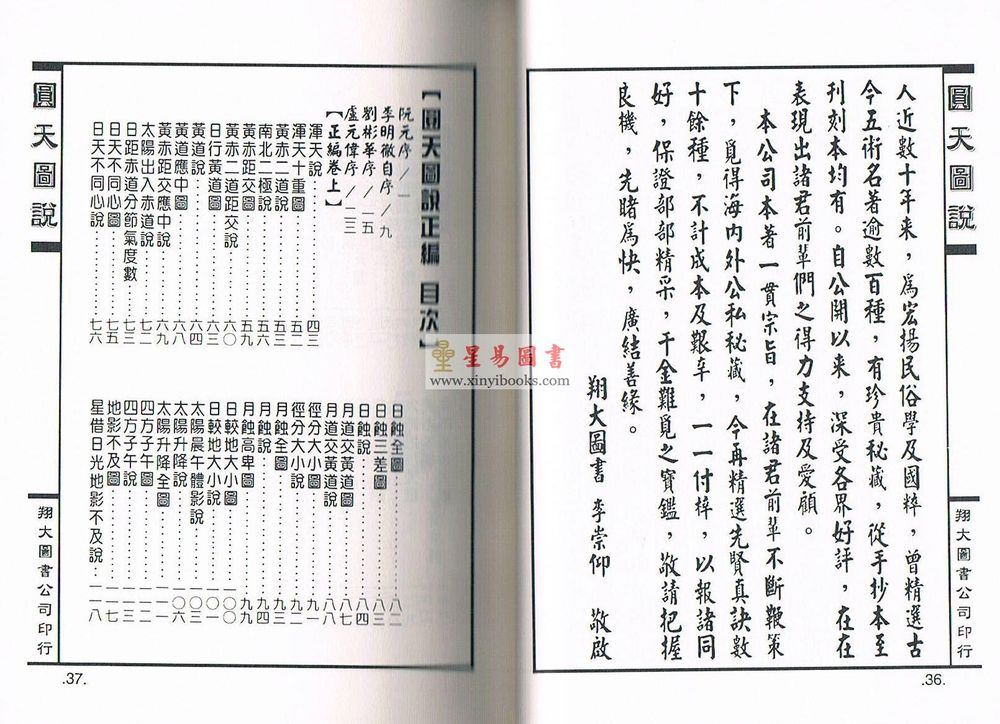 圓天圖說
人近數十年來，爲宏揚民俗學及國粹，曾精選古
今五術名著逾數百種，有珍貴秘藏，從手抄本至
刊刻本均有。自公開以來，深受各界好評，在在
表現出諸君前輩們之得力支持及愛顧。
本公司本著一貫宗旨，在諸君前輩不斷鞭策
下，覓得海內外公私秘藏，今再精選先賢真訣數
十餘種，不計成本及艱辛，一一付梓，以報諸同
好，保證部部精采，千金難覓之寶鑑，敬請把握
良機，先睹爲快，廣結善緣。
翔大圖書 李崇仰 敬啟
翔大圖書公司印行
.36.
【圓天圖說正編 目次】
阮元序／一
李明徹自序／九
劉彬華序／一五
盧元偉序／一三
【正編卷上】
渾天說……四三
渾天十重圖……五二
黃赤二道說……五五
南北二極說……五六
黃赤距交圖……五九
黃赤二道距交說……六〇
日行黃道圖……六〇
黃道說……六四
黃道應中圖……六八
黃赤距交應中說……六九
太陽出入赤道說……七二
日距赤道分節氣度數……七三
日天不同心圖……七五
日天不同心說……七六
日蝕全圖……八二
日蝕三差圖……八三
日蝕說……八四
月道交黃道圖……八七
月道交黃道說……八八
徑分大小圖……九一
徑分大小說……九二
月蝕全圖……
月蝕說……九四
月蝕高卑圖……九九
日較地大小圖……一〇〇
日較地大小說……一〇一
太陽晨午體影說……
太陽升降說……一〇六
太陽升降全圖……一一一
四方子午圖……一一二
四方子午說……一一三
地影不及圖……一一七
星借日光地影不及說……一一八
圓天圖說
翔大圖書公司印行
.37.
星易圖書
www.xinyibooks.com